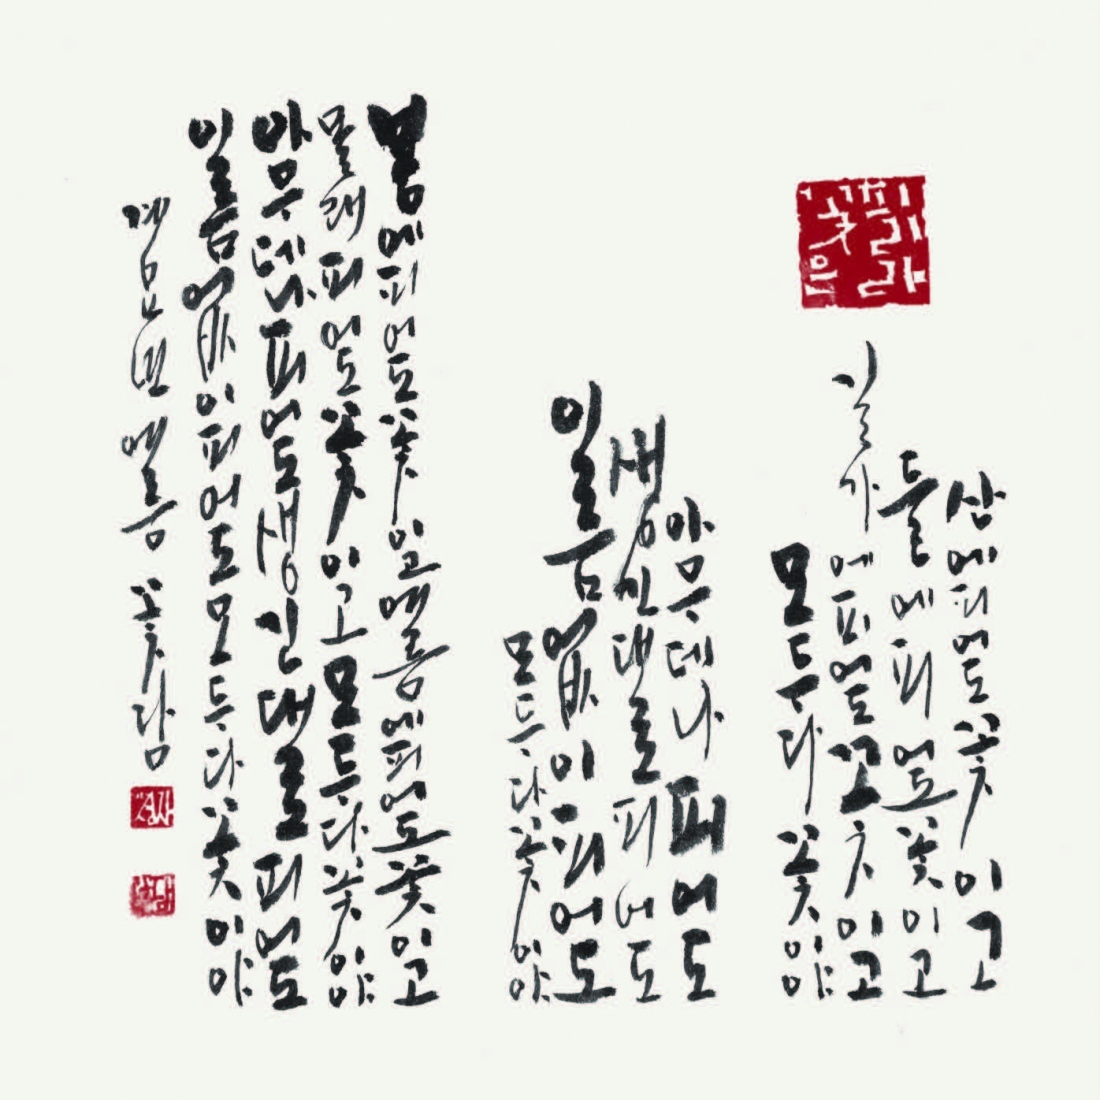 산에 피어도 꽃이고
들에 피어도 꽃이고
길가에 피어도 꽃이고
모두 다 꽃이야
아무데나 피어도
생긴대로 피어도
이름없이 피어도
모두 다 꽃이야
봄에 피어도 꽃이고 여름에 피어도 꽃이고
몰래 피어도 꽃이고 모두 다 꽃이야
아무데나 피어도 생긴대로 피어도
이름없이 피어도 모두 다 꽃이야
계묘년 여름 꽃담